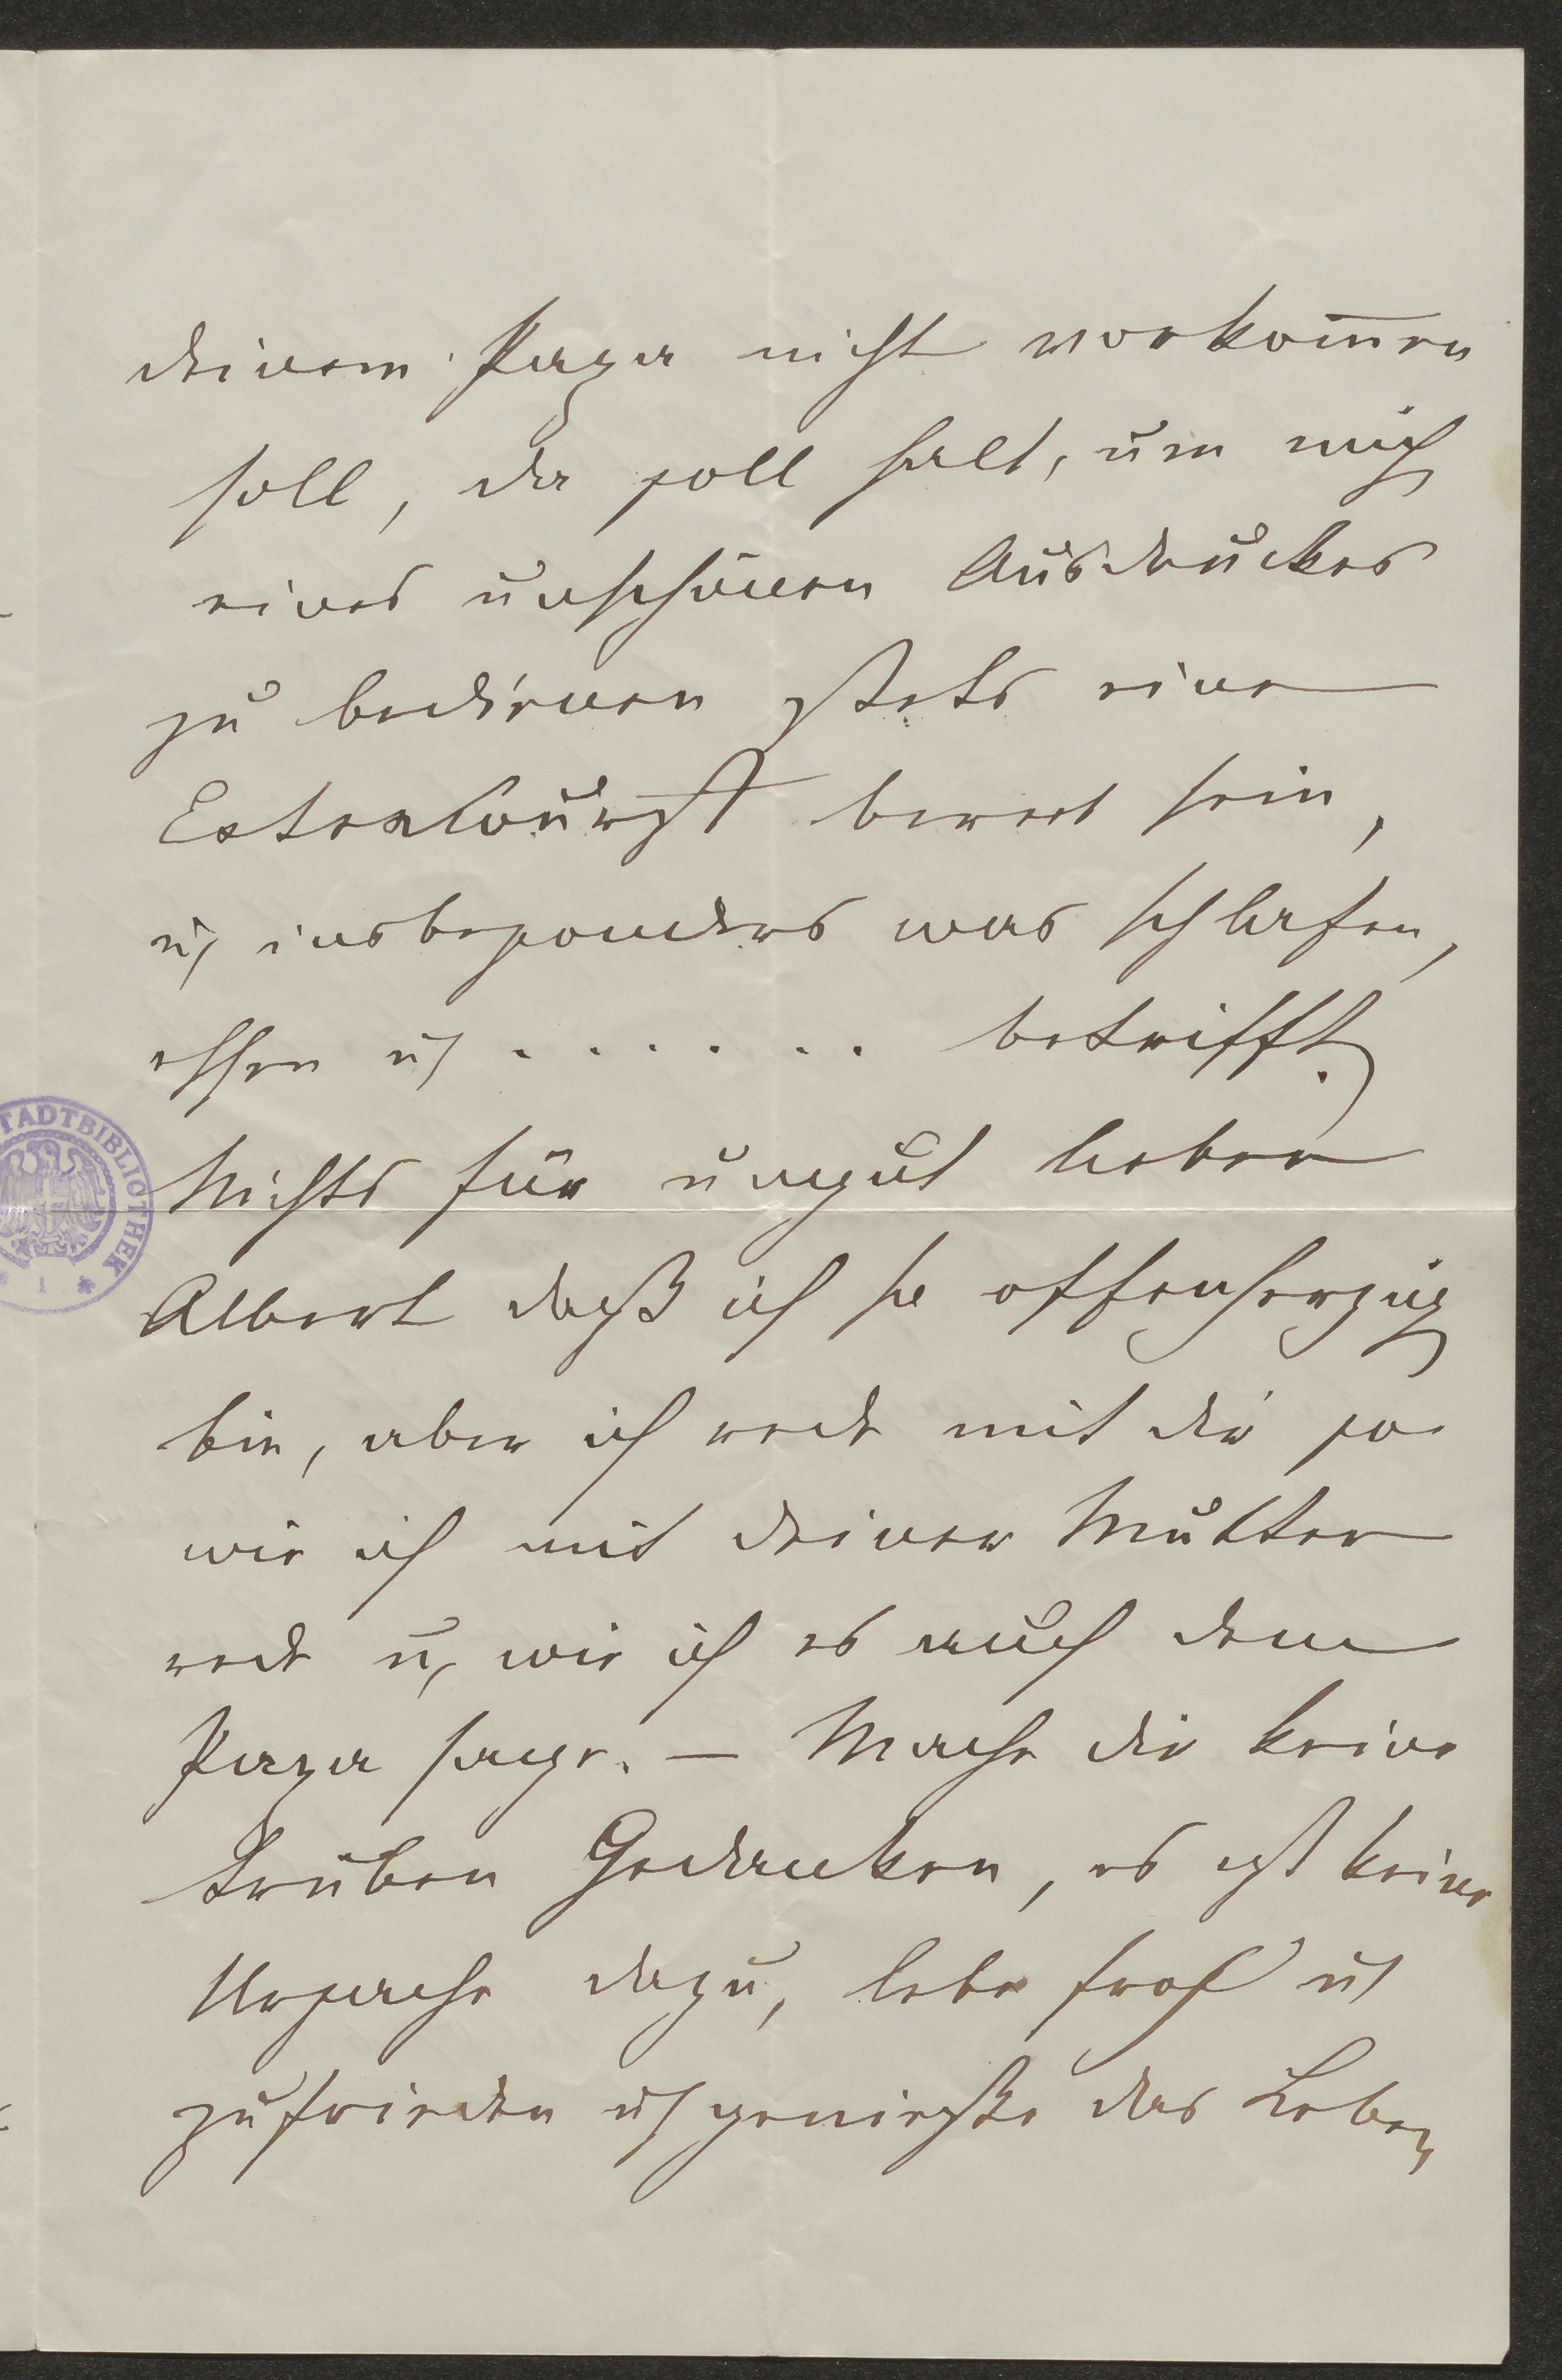 deinem Papa nicht vorkom̅en
soll, da soll halt, um mich
eines unschönen Ausdruckes
zu bedienen stets eine
Extrawurst bereit sein,
u, insbesonders was schlafen,
essen u, . . . . . . . betrifft.
Nichts für ungut lieber
Albert daß ich so offenherzig
bin, aber ich rede mit dir so
wie ich mit deiner Mutter
rede u, wie ich es auch dem
Papa sage. — Mache dir keine
trüben Gedanken, es ist keine
Ursache dazu, lebe froh u,
zufrieden u, genieße das Leben,
STADTBIBLIOTHEK
* 1 *